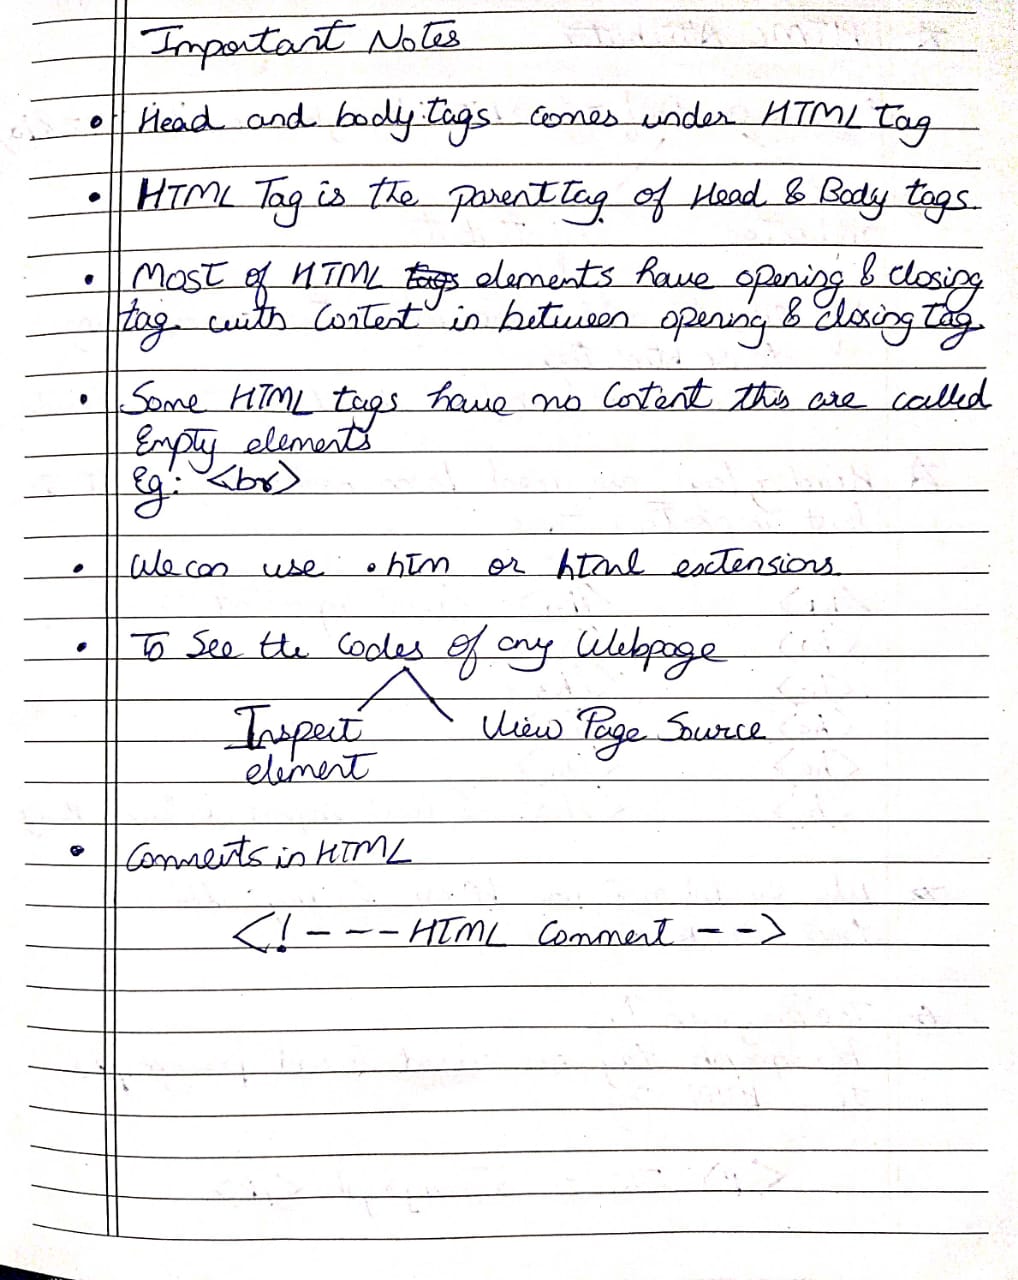 Important Notes
• Head and body tags comes under HTML Tag
• HTML Tag is the parent tag of Head & Body tags.
• Most of HTML tags elements have opening & closing
tag with Content in between opening & closing tag.
• Some HTML tags have no Content this are called
Empty elements
Eg: <br>
• We can use .htm or html extensions.
• To See the Codes of any Webpage
Inspect View Page Source
element
• Comments in HTML
<!--- HTML Comment -->